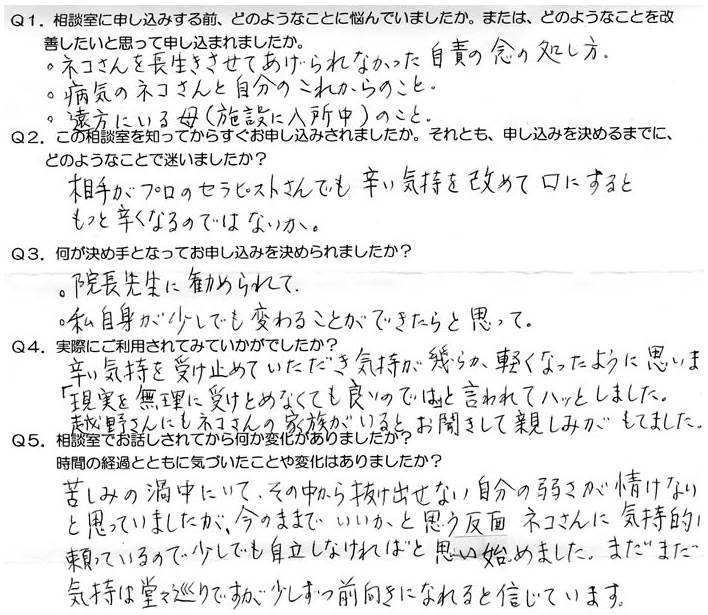 Q1. 相談室に申し込みする前、どのようなことに悩んでいましたか。または、どのようなことを改
善したいと思って申し込まれましたか。
。ネコさんを長生きさせてあげられなかった自責の念の処し方。
。病気のネコさんと自分のこれからのこと。
。遠方にいる母(施設に入所中)のこと。
Q2. この相談室を知ってからすぐお申し込みされましたか。それとも、申し込みを決めるまでに、
どのようなことで迷いましたか?
相手がプロのセラピストさんでも辛い気持を改めて口にすると
もっと辛くなるのではないか。
Q3. 何が決め手となってお申し込みを決められましたか?
。院長先生に勧められて.
。私自身が少しでも変わることができたらと思って。
Q4. 実際にご利用されてみていかがでしたか?
辛い気持を受け止めていただき気持が幾らか、軽くなったように思いま
「現実を無理に受けとめなくても良いのでは」と言われてハッとしました。
越野さんにもネコさんの家族がいるとお聞きして親しみがもてました。
Q5. 相談室でお話しされてから何か変化がありましたか?
時間の経過とともに気づいたことや変化はありましたか?
苦しみの渦中にいて、その中から抜け出せない自分の弱さが情けない
と思っていましたが、今のままでいいかと思う反面 ネコさんに気持的に
頼っているので少しでも自立しなければと思い始めました。まだまだ
気持は堂々巡りですが、少しずつ前向きになれると信じています。